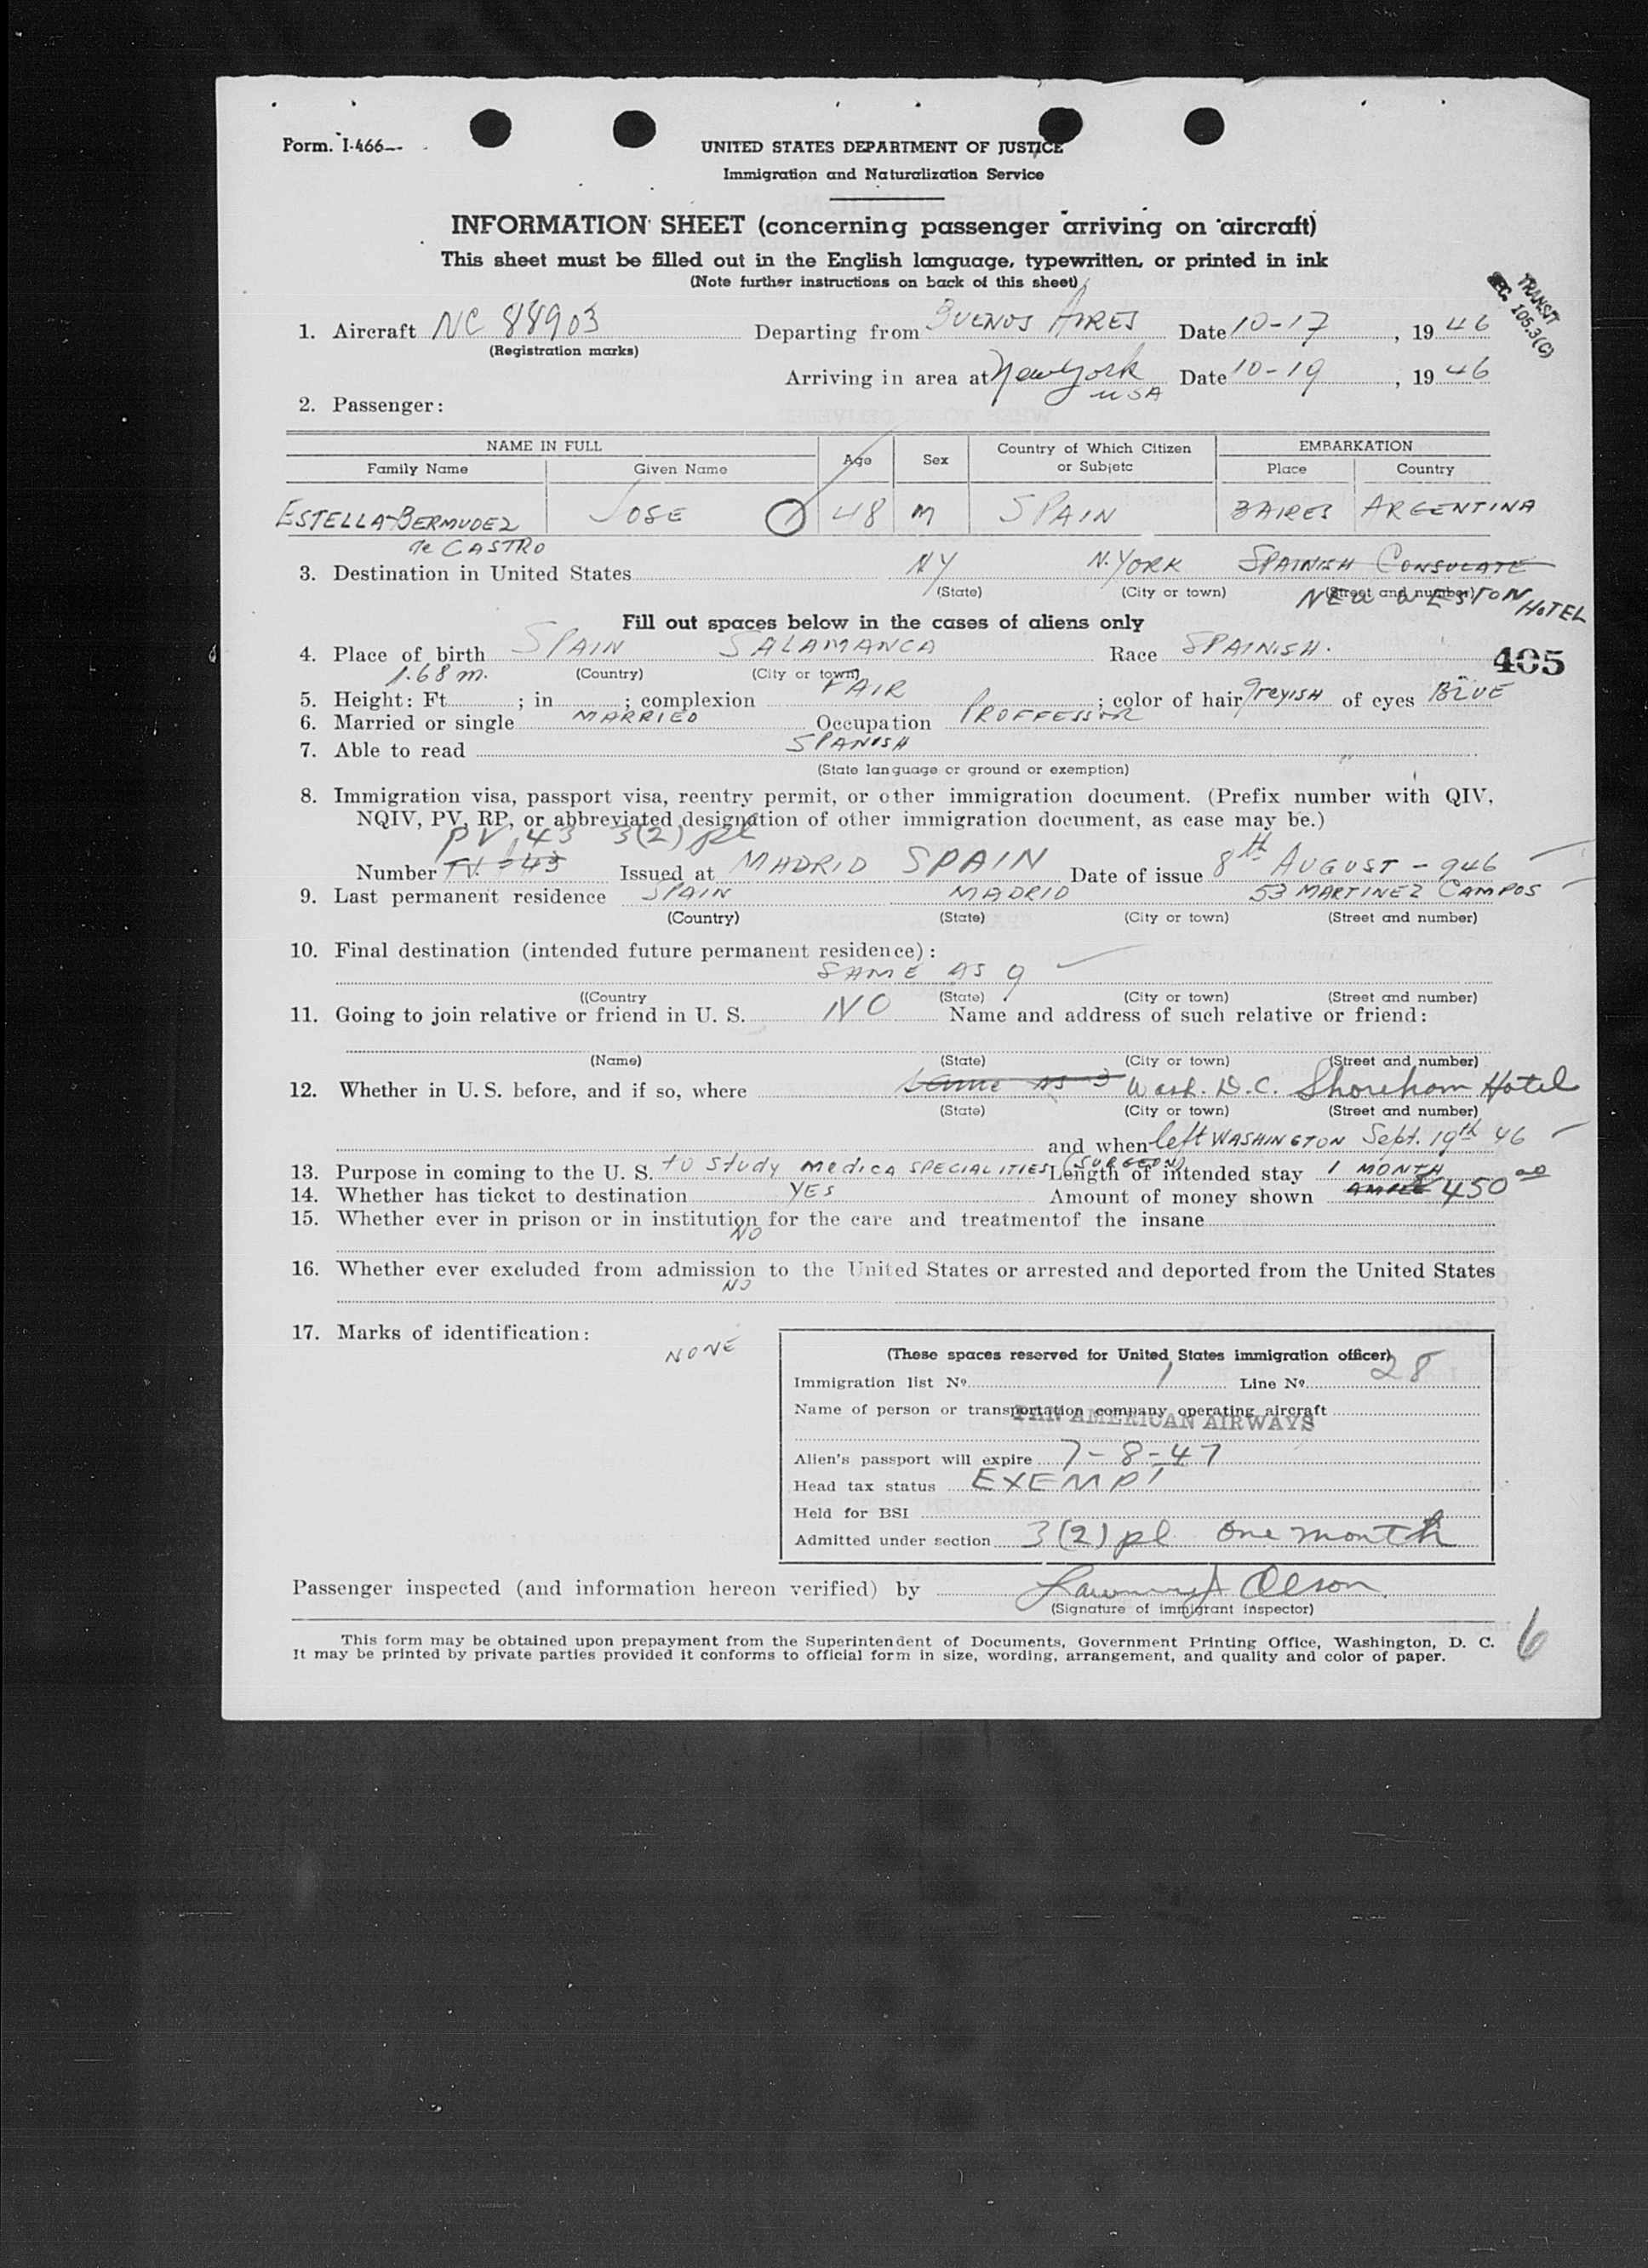 Form. I-466
UNITED STATES DEPARTMENT OF JUSTICE
Immigration and Naturalization Service
INFORMATION SHEET (concerning passenger arriving on aircraft)
This sheet must be filled out in the English language, typewritten, or printed in ink
(Note further instructions on back of this sheet)
TRANSIT
SEC. 105.3(C)
1. Aircraft NC 88903 Departing from BUENOS AIRES Date 10-17, 1946
(Registration marks)
Arriving in area at New York USA Date 10-19, 1946
2. Passenger:
NAME IN FULL Age Sex Country of Which Citizen or Subjetc EMBARKATION
Family Name Given Name Place Country
ESTELLA-BERMUDEZ JOSE 48 M SPAIN BAIRES ARGENTINA
de CASTRO
3. Destination in United States NY N.YORK SPAINISH CONSULATE
(State) (City or town) (Street and number)
NEW WESTON HOTEL
Fill out spaces below in the cases of aliens only
4. Place of birth SPAIN SALAMANCA Race SPAINISH.
405
1.68 m. (Country) (City or town)
5. Height: Ft. ; in ; complexion FAIR ; color of hair Greyish of eyes BLUE
6. Married or single MARRIED Occupation PROFFESSOR
7. Able to read SPANISH
(State language or ground or exemption)
8. Immigration visa, passport visa, reentry permit, or other immigration document. (Prefix number with QIV,
NQIV, PV, RP, or abbreviated designation of other immigration document, as case may be.)
PV 143 3(2) pl
Number Issued at MADRID SPAIN Date of issue 8th AUGUST - 946
9. Last permanent residence SPAIN MADRID 53 MARTINEZ CAMPOS
(Country) (State) (City or town) (Street and number)
10. Final destination (intended future permanent residence):
SAME AS 9
((Country (State) (City or town) (Street and number)
11. Going to join relative or friend in U. S. NO Name and address of such relative or friend:
(Name) (State) (City or town) (Street and number)
12. Whether in U. S. before, and if so, where same as 3 Wash. D.C. Shoreham Hotel
(State) (City or town) (Street and number)
and when left WASHINGTON Sept. 19th 46
13. Purpose in coming to the U. S. to study medica SPECIALITIES (SURGEON) Length of intended stay 1 MONTH
14. Whether has ticket to destination YES Amount of money shown AMPLE $450.00
15. Whether ever in prison or in institution for the care and treatmentof the insane
NO
16. Whether ever excluded from admission to the United States or arrested and deported from the United States
NO
17. Marks of identification: NONE
(These spaces reserved for United States immigration officer)
Immigration list No. 1 Line No. 28
Name of person or transportation company operating aircraft
PAN AMERICAN AIRWAYS
Alien's passport will expire 7-8-47
Head tax status EXEMPT
Held for BSI
Admitted under section 3(2) pl One month
Passenger inspected (and information hereon verified) by Olson
(Signature of immigrant inspector)
This form may be obtained upon prepayment from the Superintendent of Documents, Government Printing Office, Washington, D. C.
It may be printed by private parties provided it conforms to official form in size, wording, arrangement, and quality and color of paper.
6